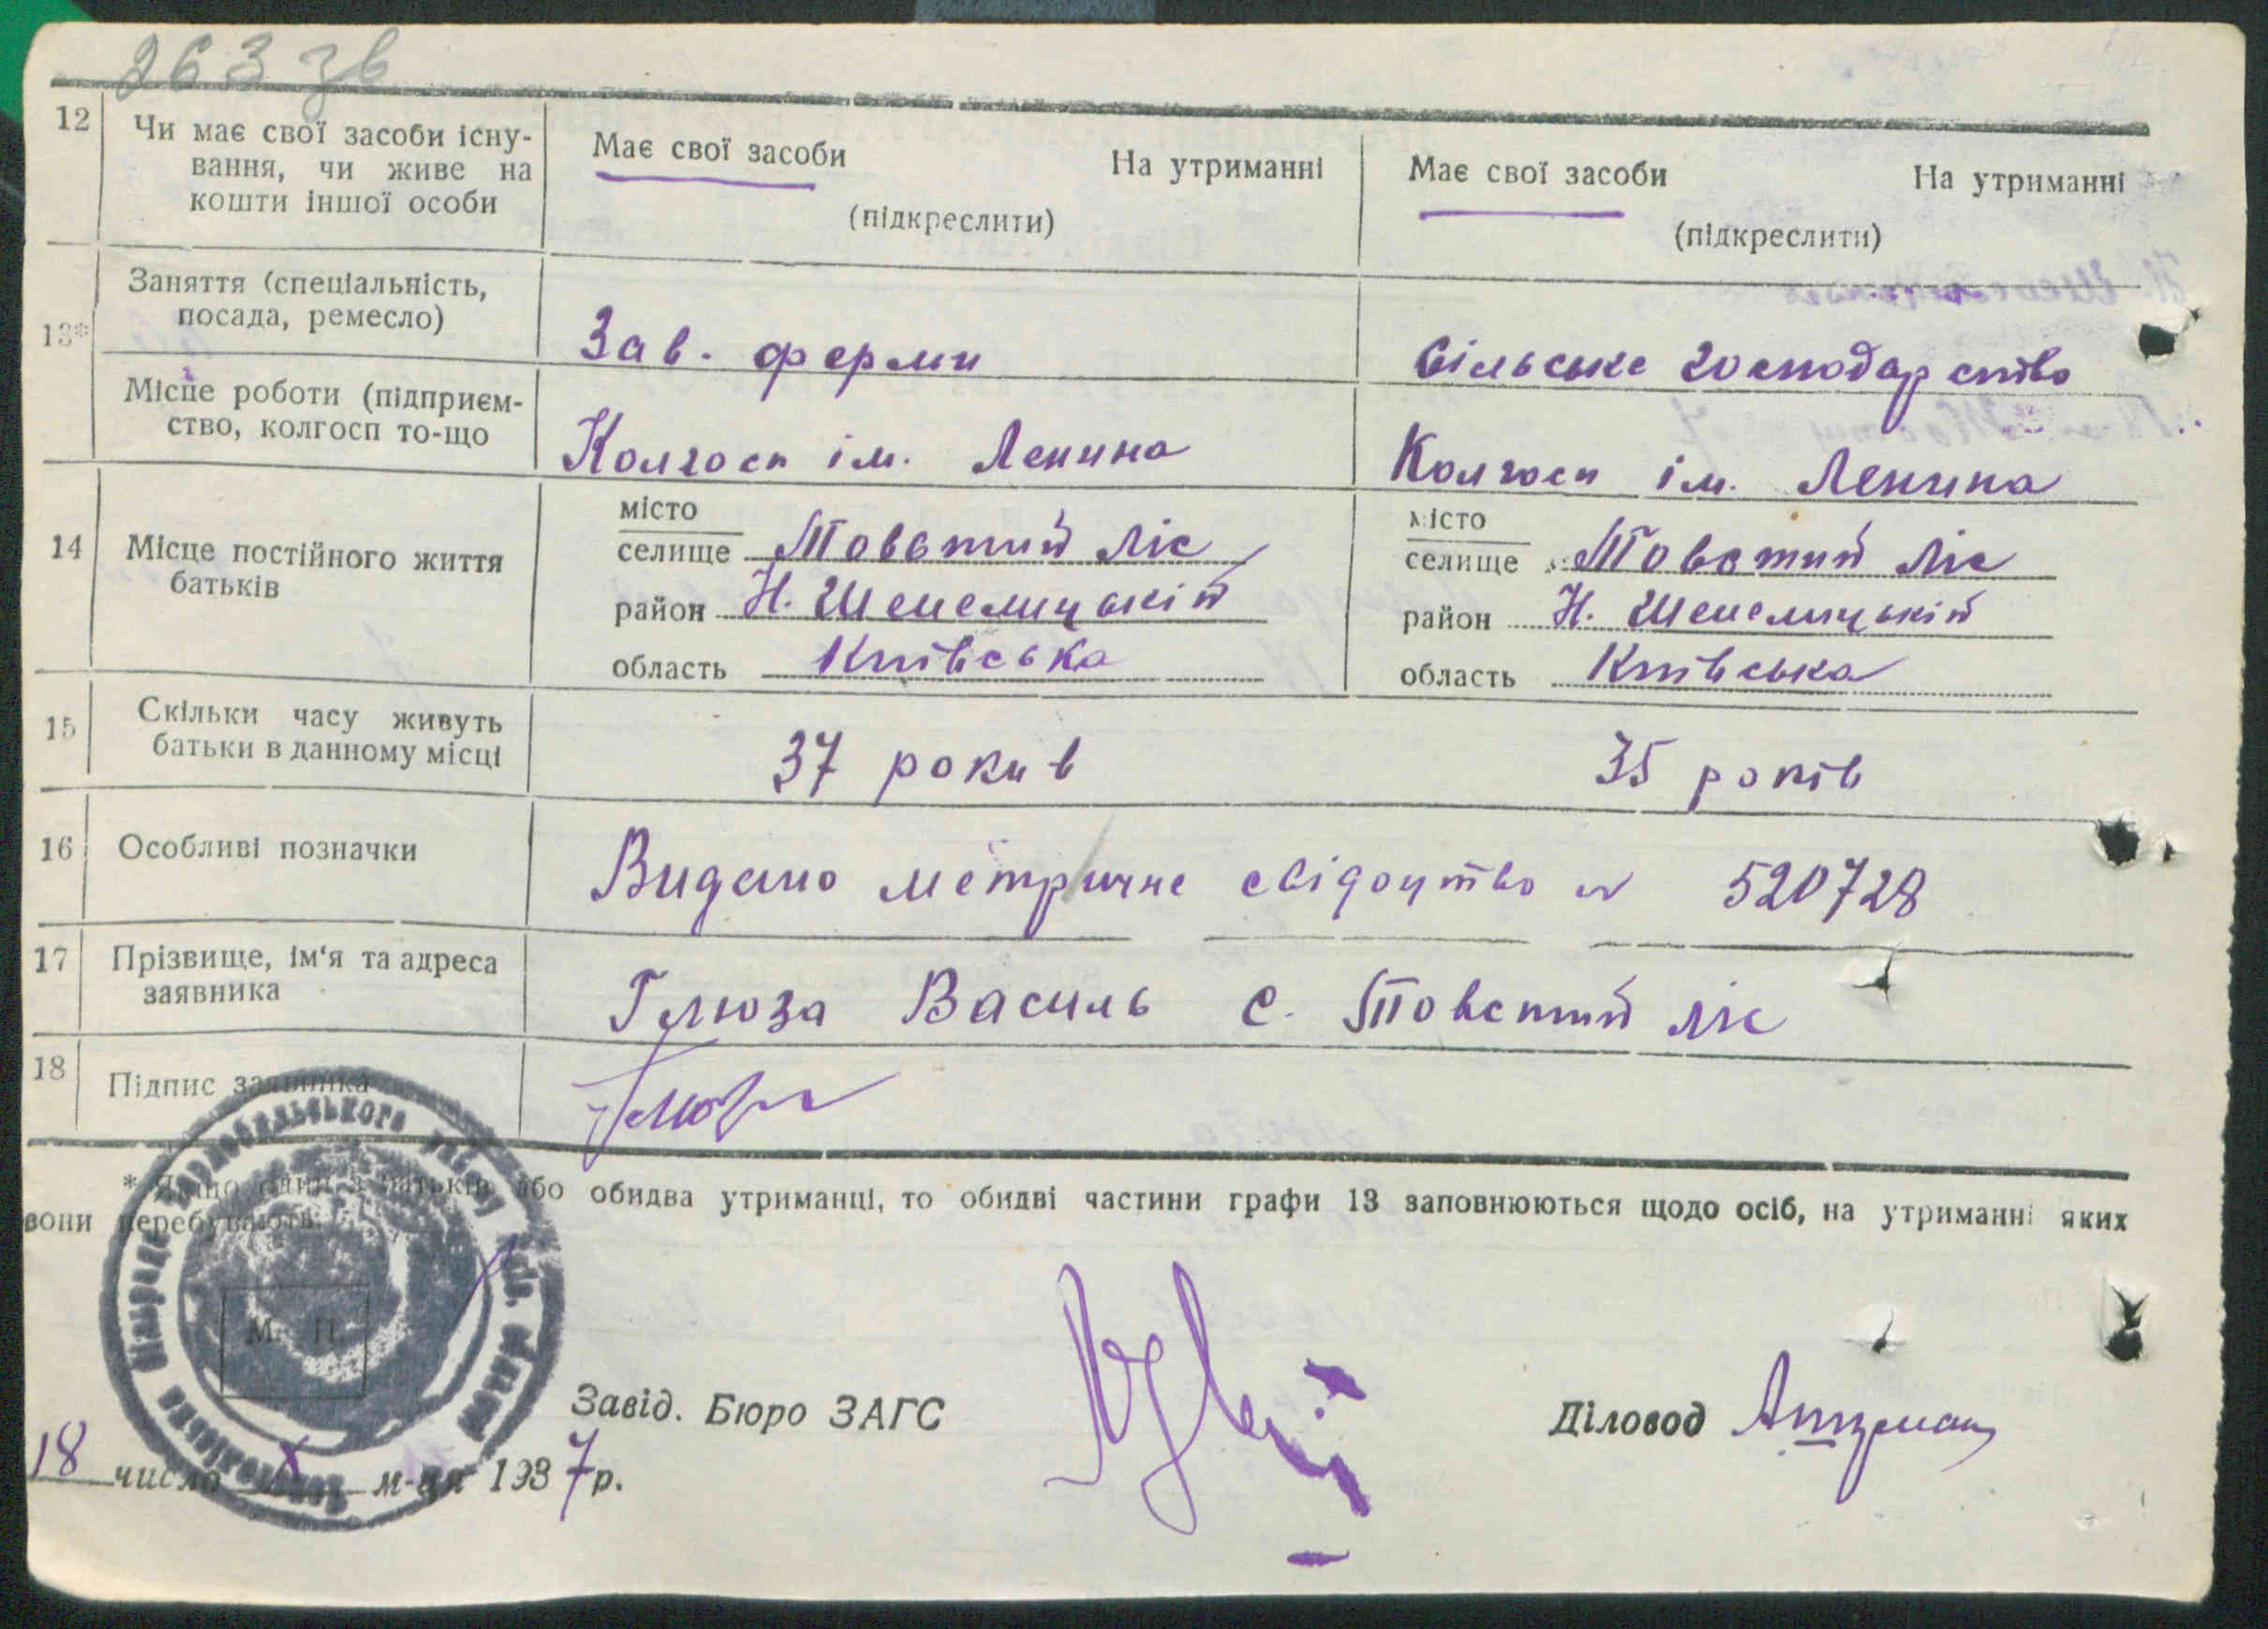 263 зв
12 Чи має свої засоби існу-
вання, чи живе на
кошти іншої особи
Має свої засоби На утриманні
(підкреслити)
Має свої засоби На утриманні
(підкреслити)
13*
Заняття (спеціальність,
посада, ремесло)
Зав. ферми
Сільське господарство
Місце роботи (підприєм-
ство, колгосп то-що
Колгосп ім. Ленина
Колгосп ім. Ленина
14 Місце постійного життя
батьків
місто
селище Товстий Ліс
район Н. Шепелицький
область Київська
місто
селище Товстий Ліс
район Н. Шепелицький
область Київська
15 Скільки часу живуть
батьки в данному місці
37 рокив
35 років
16 Особливі позначки
Видано метричне свідоцтво № 520728
17 Прізвище, ім'я та адреса
заявника
Глюза Василь с. Товстий Ліс
18 Підпис заявника
Глюза
* Якщо один з батьків або обидва утриманці, то обидві частини графи 13 заповнюються щодо осіб, на утриманні яких
вони перебувають.
М. П.
Завід. Бюро ЗАГС
Діловод
18 число X м-ця 1937 р.